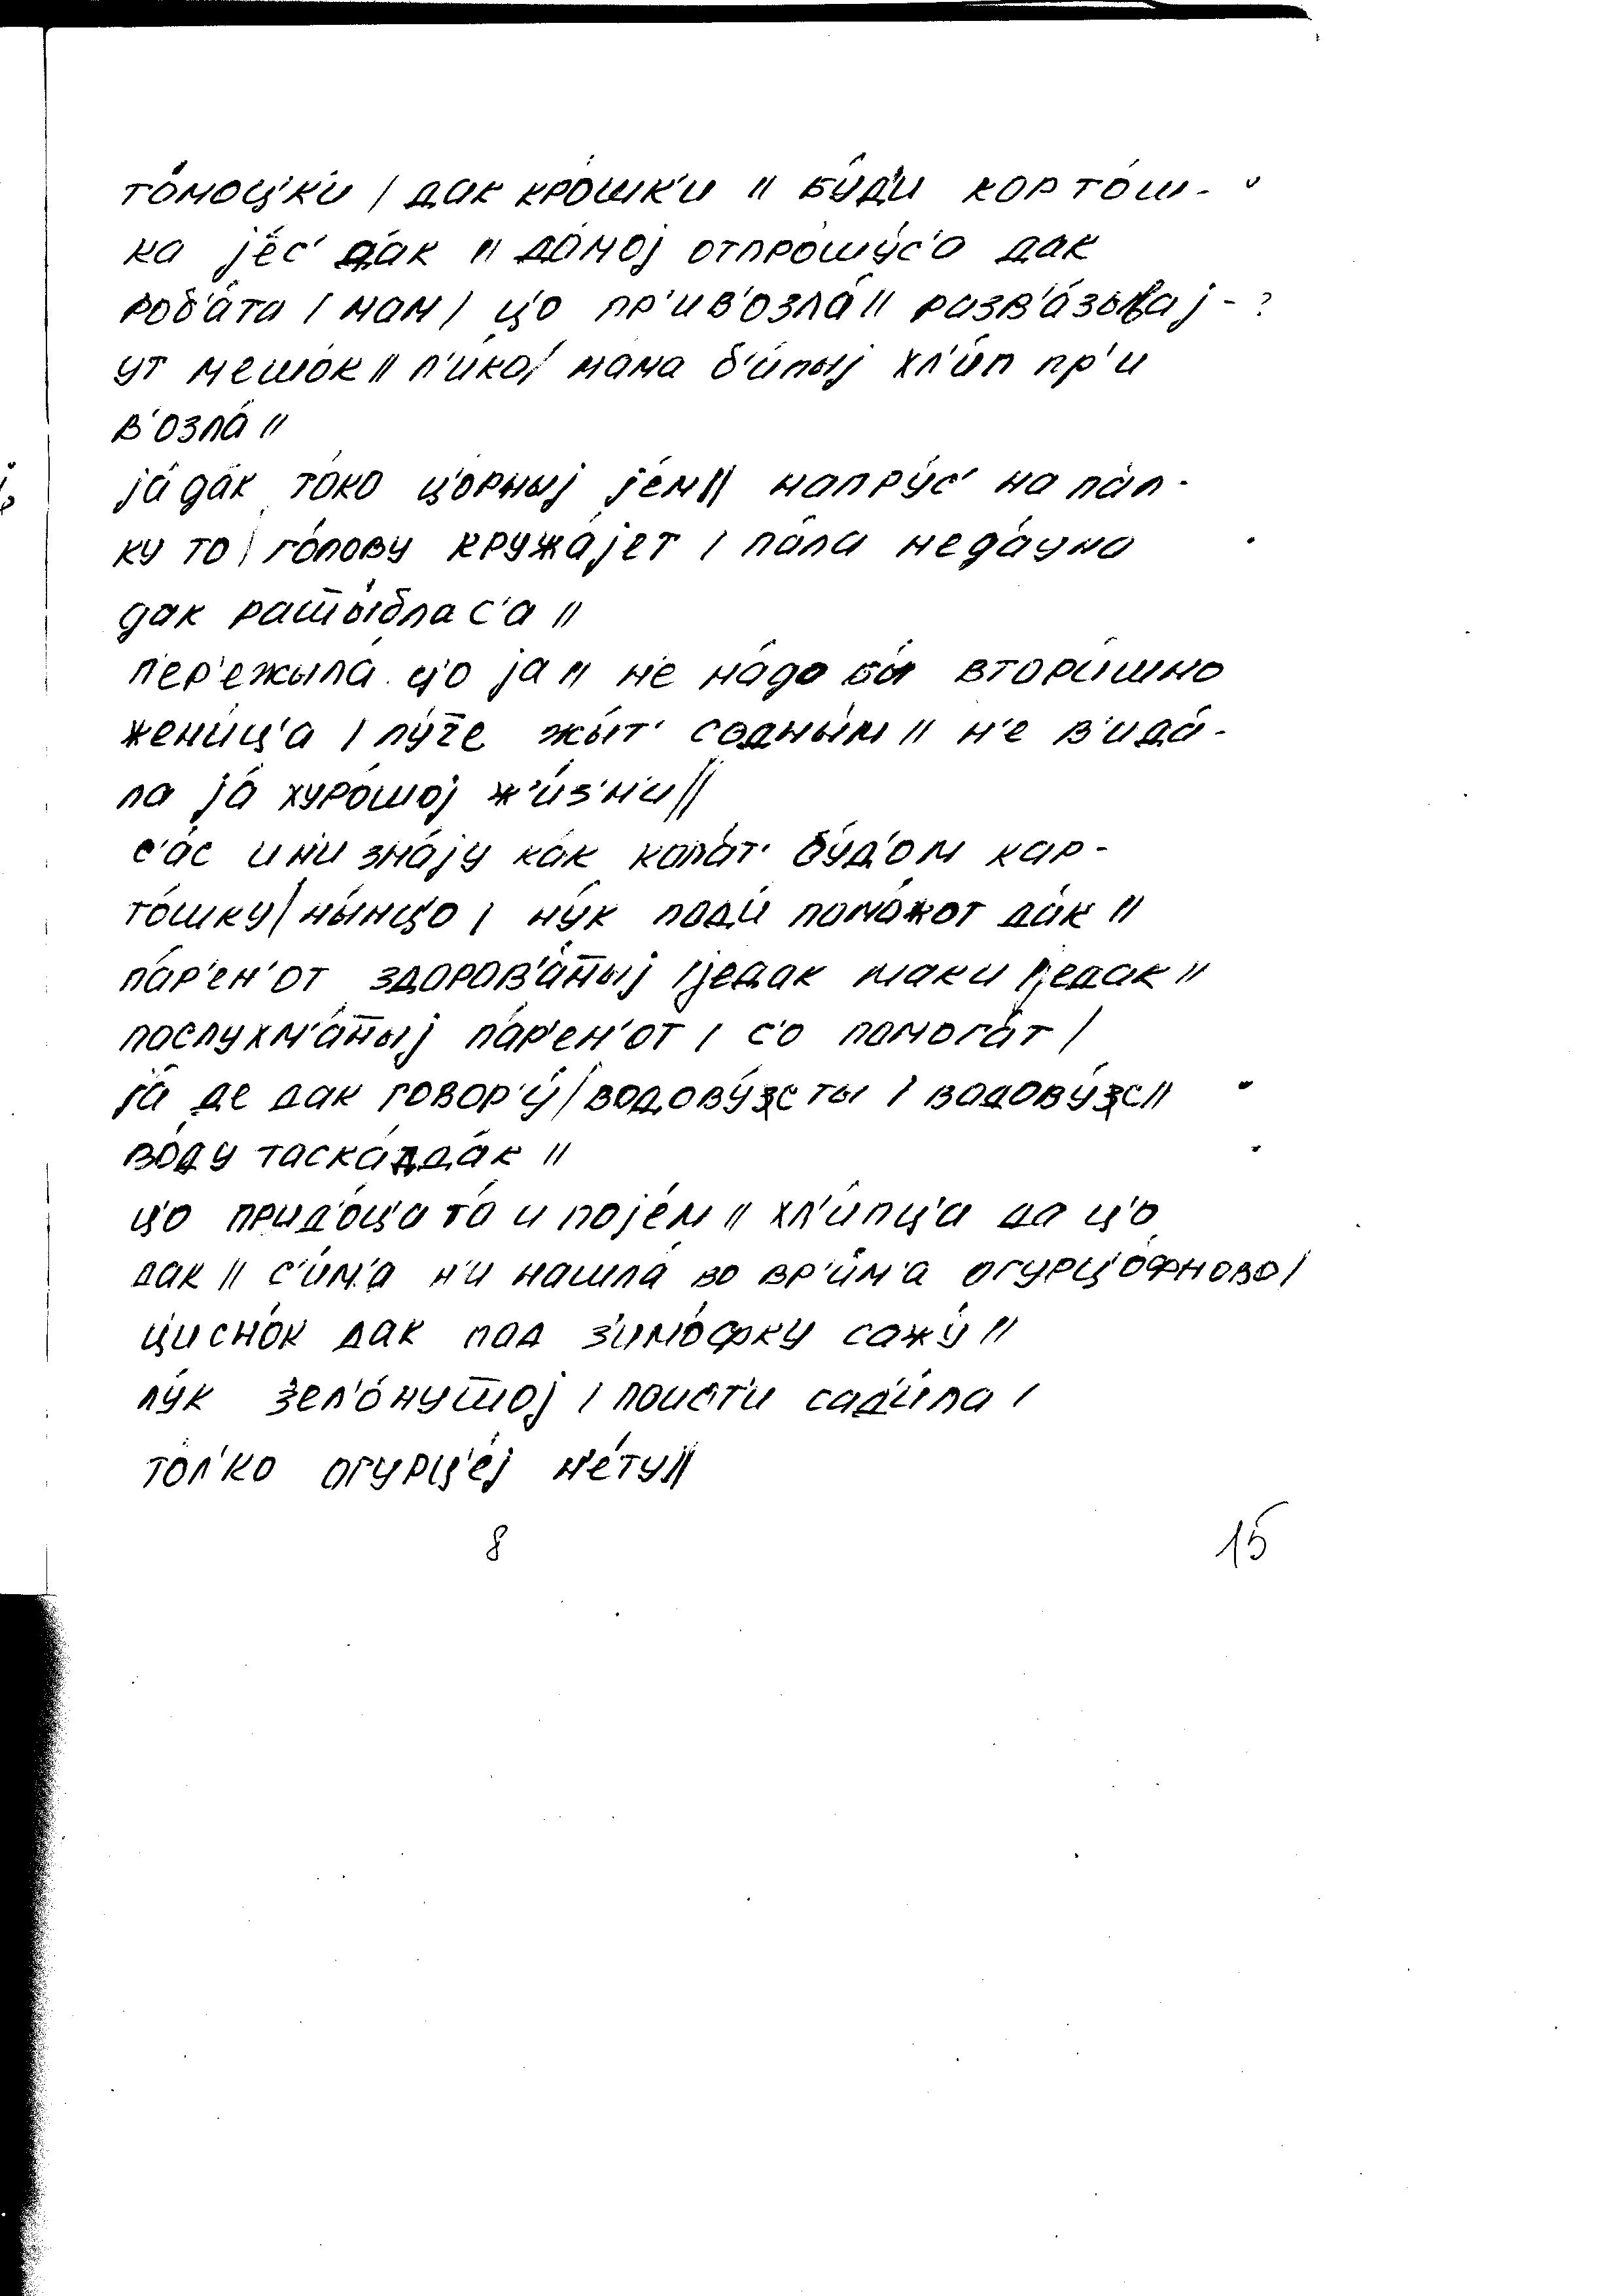 то́моц'к'и / дак кро́шк'и // бу́д'и корто́ш-
ка је́с' да́к // да́мој отпрошу́с'а дак
роб'а́та / мам / ц'о пр'ив'озла́ // разв'а́зывај-
ут мешо́к // л'и́ко / мама б'и́лыј хл'и́п пр'и
в'озла́ //
ја́ да́к то́ко ц'о́рныј је́м // напру́с' на па́л-
ку то / го́лову кружа́јет / па́ла неда́уно
дак ратты́бласа //
п'ер'ежыла́ ц'о ја // н'е на́до бы́ втори́шно
жени́ц'а / лу́че жы́т' содны́м // н'е в'ида́-
ла ја́ хуро́шој ж'и́з'н'и //
с'а́с и ни зна́ју как копа́т' бу́д'ом кар-
то́шку / ны́нцо / ну́к поди́ пома́жот да́к //
па́р'ен'от здоров'а́нныј једак маки једак //
послухм'а́нныј па́р'ен'от / с'о помога́т /
ја́ де дак говор'у́ / водову́зс ты / водову́зс //
во́ду таска́д да́к //
ц'о прид'о́ц'а то́ и поје́м // хл'и́пц'а да ц'о
дак // с'и́м'а н'и нашла́ во вр'и́м'а огурц'о́фново /
циснок дак под з'имо́фку сажу́ //
лу́к зел'о́нуттој / поист'и сад'и́ла /
то́л'ко огурц'е́ј н'е́ту //
8 15